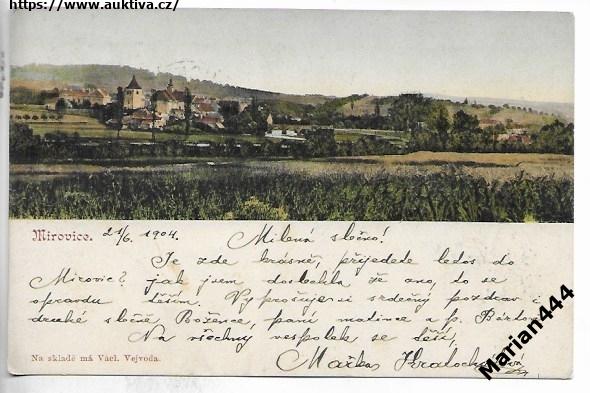 https://www.auktiva.cz/
Mirovice. 21/6. 1904. Milená slečno!
Je zde krásně, přijedete letos do
Mirovic? jak jsem doslechla že ano, to se
opravdu těším. Vyprošuje si srdečný pozdrav i
druhé slečně Božence, paní matince a p. Bárto
Na všechny vespolek se těší,
Mařka
Na skladě má Václ. Vejvoda.
Marian444